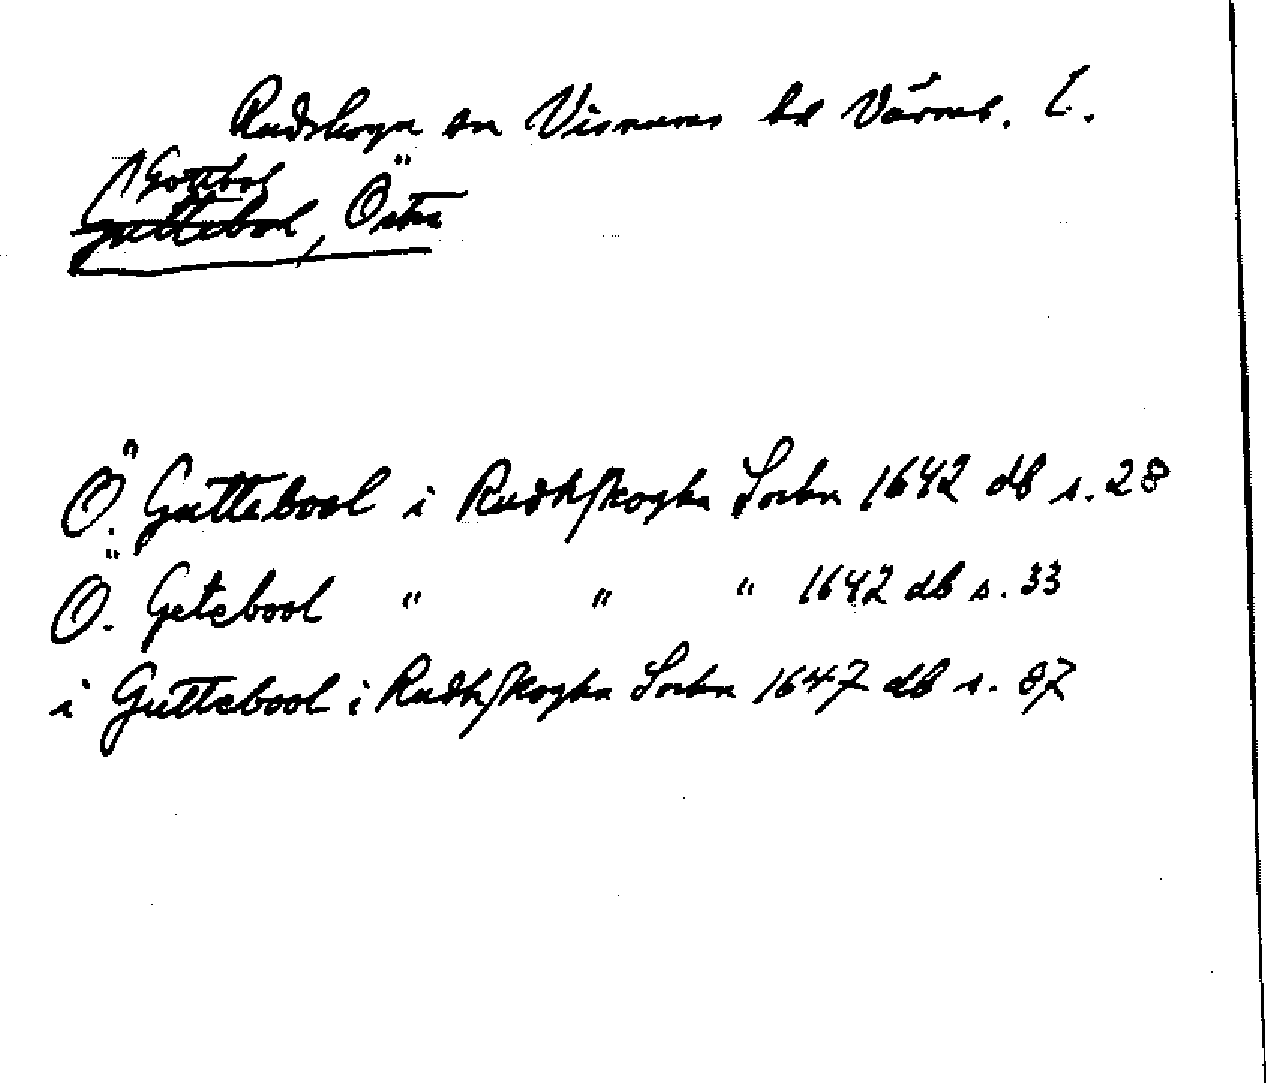 Rudskoga sn Visnums hd Värml. L.
Gottbol
Guttebol, Östra
Ö. Guttebool i Rudhskogha Sochn 1642 db s. 28
Ö. Getebool " " " 1642 db s. 33
i Guttebool i Rudhskogha Sochn 1647 db s. 87